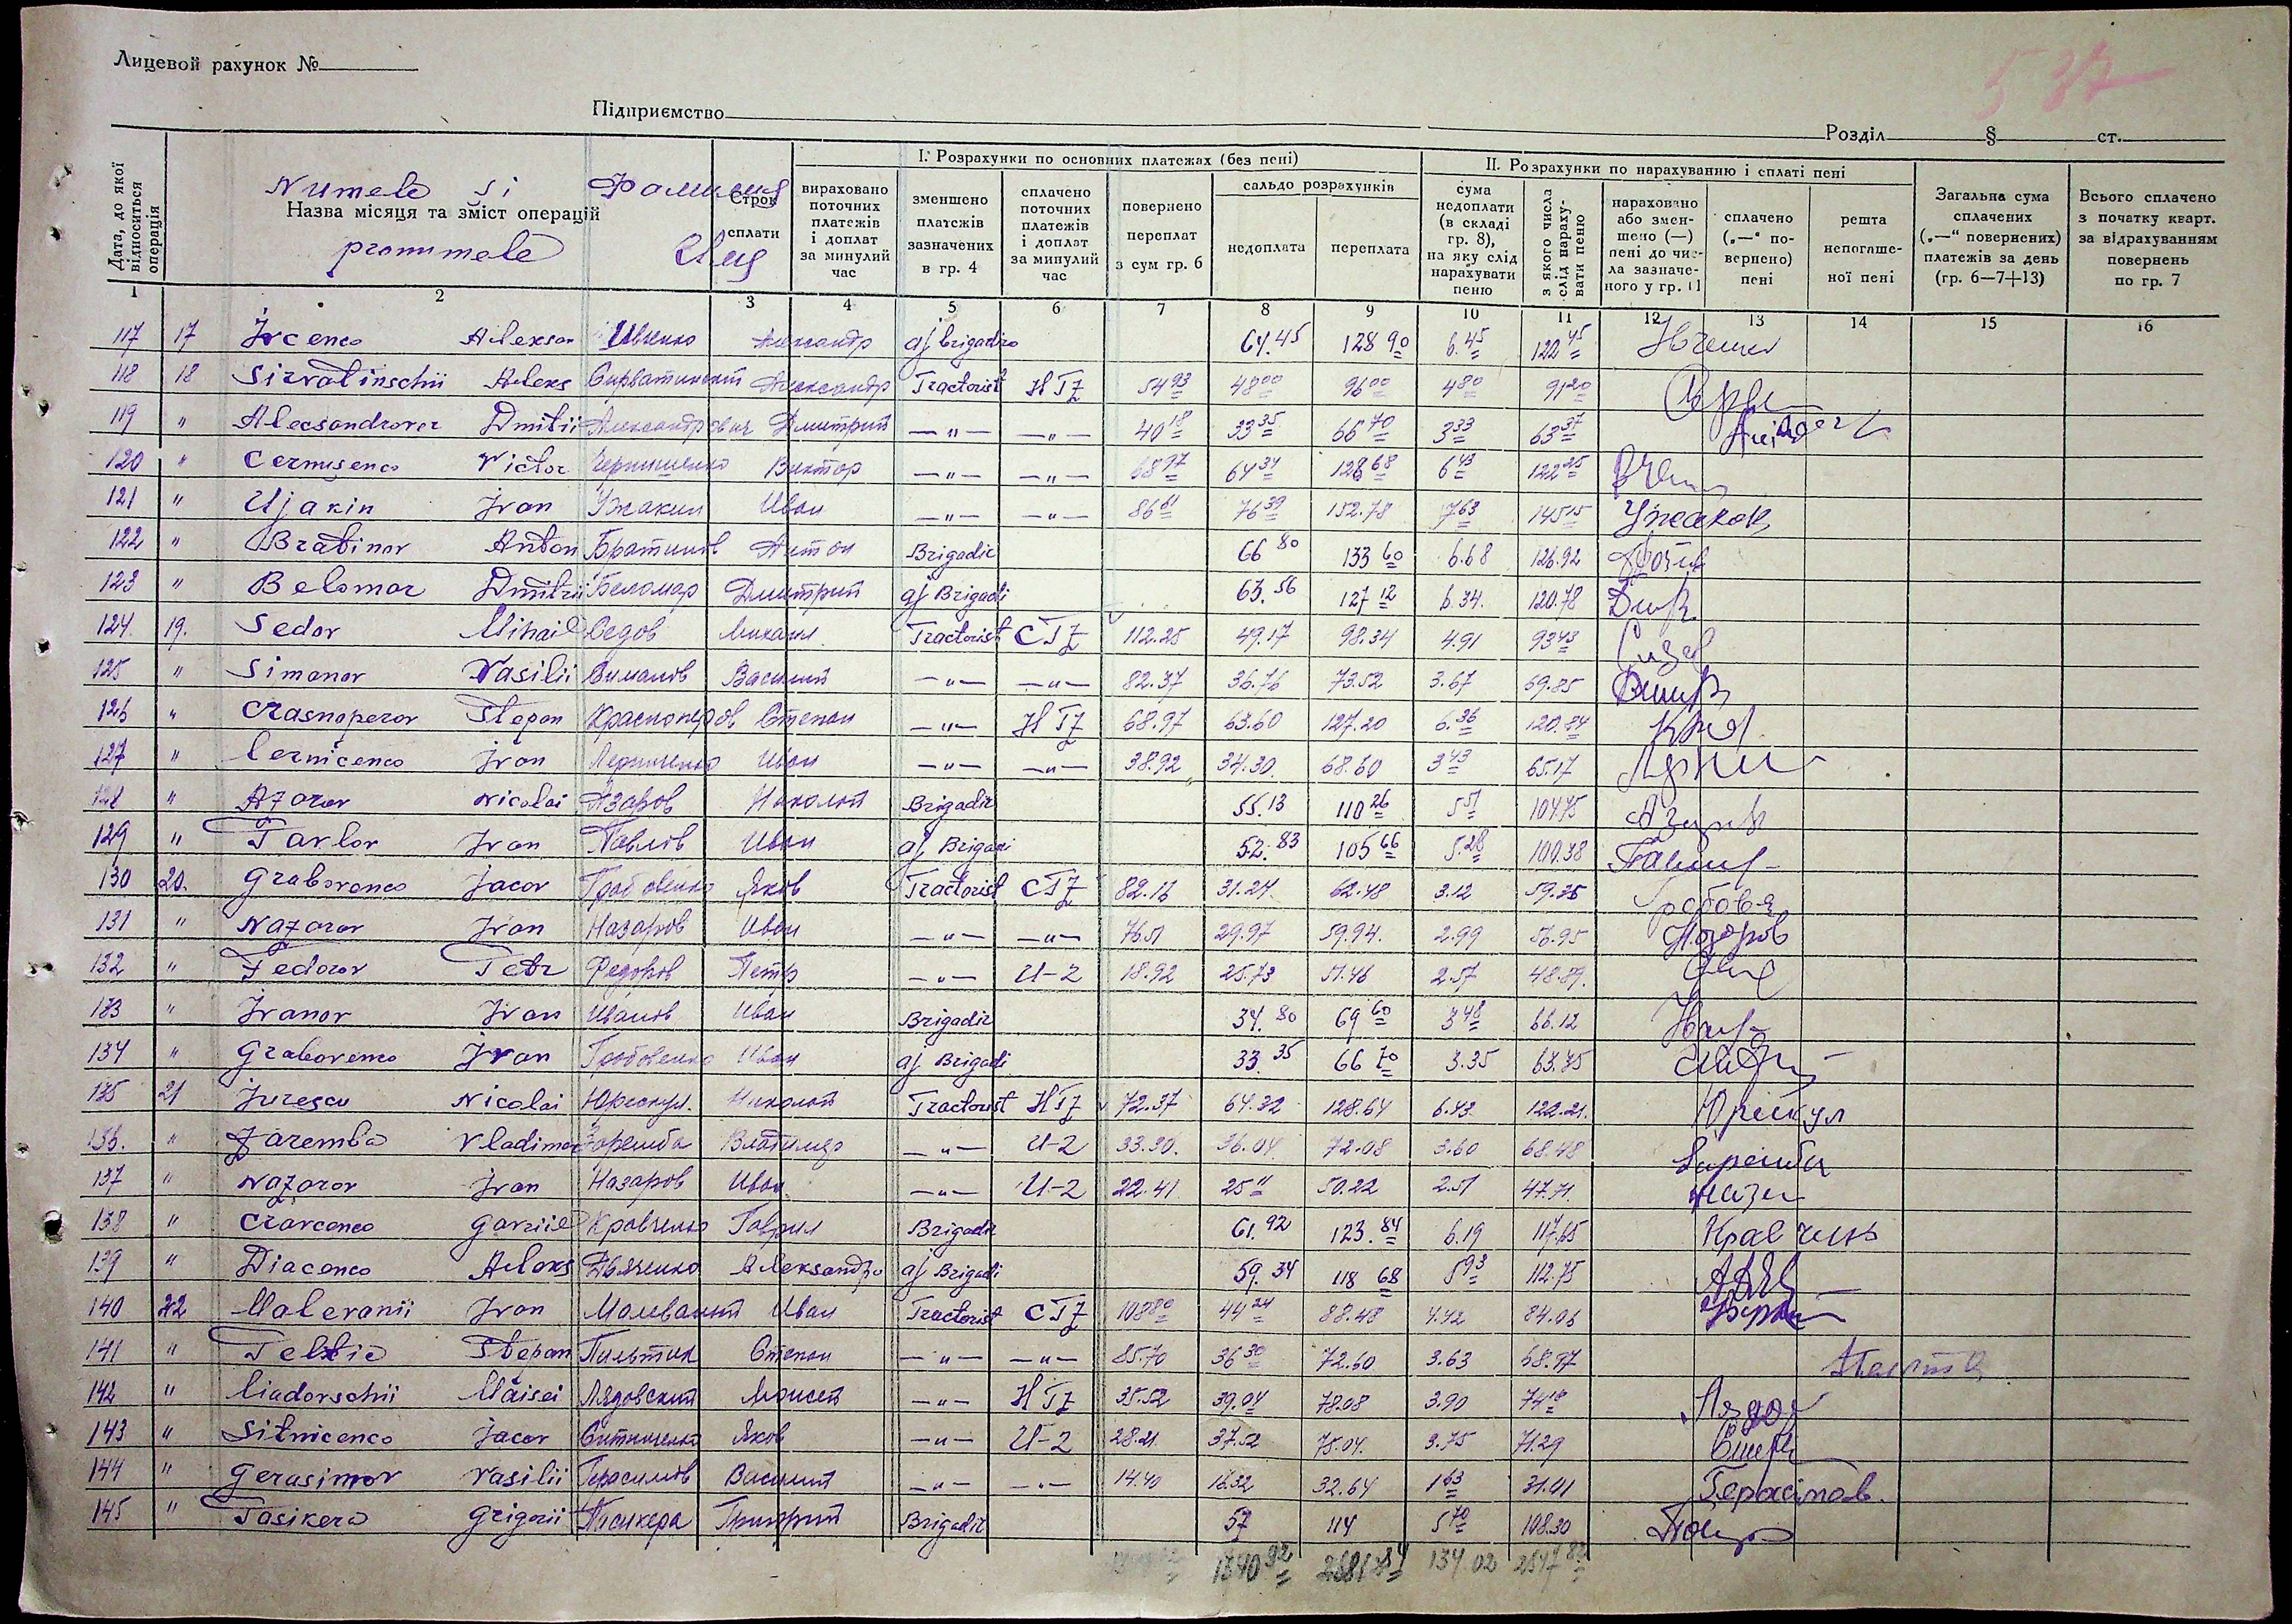 Лицевой рахунок №
537
Підприємство
Розділ § ст.
Дата, до якої відноситься операція
Numele si Фамилия
Назва місяця та зміст операцій
pronumele Имя
Строк сплати
І. Розрахунки по основних платежах (без пені)
вираховано поточних платежів і доплат за минулий час
зменшено платежів зазначених в гр. 4
сплачено поточних платежів і доплат за минулий час
повернено переплат з сум гр. 6
сальдо розрахунків
недоплата
переплата
ІІ. Розрахунки по нарахуванню і сплаті пені
сума недоплати (в складі гр. 8), на яку слід нарахувати пеню
з якого числа слід нараху-вати пеню
нараховано або змен-шено (—) пені до чис-ла зазначе-ного у гр. 11
сплачено („—“ по-вернено) пені
решта непогаше-ної пені
Загальна сума сплачених („—“ повернених) платежів за день (гр. 6—7+13)
Всього сплачено з початку кварт. за відрахуванням повернень по гр. 7
1 2 3 4 5 6 7 8 9 10 11 12 13 14 15 16
117 17 Ivcenco Aleksan Ивченко Александр aj brigadiro 64.45 128 90 6.45 122 45
118 18 Sirvatinschii Aleks Сирватинский Александр Tractorist НТZ 54 93 48 00 96 00 4 80 91 20
119 " Alecsandrover Dmitii Александрович Дмитрий —"— —"— 40 18 33 35 66 70 3 33 63 37
120 " Cernisenco Victor Чернишенко Виктор —"— —"— 68 97 64 34 128 68 6 43 122 25
121 " Ujakin Ivan Ужакин Иван —"— —"— 86 61 76 39 152.78 7 63 145 15 Ужакок
122 " Bratinov Anton Братинов Антон Brigadir 66 80 133 60 6.68 126.92
123 " Belomar Dmitrii Беломар Дмитрий aj Brigadi 63.56 127 12 6.34. 120.78
124. 19. Sedov Mihail Седов Михаил Tractorist СТZ 112.25 49.17 98.34 4.91 93 43
125 " Simanov Vasilii Симанов Василий —"— —"— 82.37 36.76 73.52 3.67 69.85
126 " Crasnoperov Stepan Красноперов Степан —"— НТZ 68.97 63.60 127.20 6.36 120.84
127 " Lernicenco Ivan Лерниченко Иван —"— —"— 38.92 34.30 68.60 3 43 65.17
128 " Azarov Nicolai Азаров Николай Brigadir 55.13 110 26 5 51 104.75
129 " Pavlov Ivan Павлов Иван aj Brigadi 52.83 105 66 5.28 100.38
130 20. Grabovenco Jacov Грабовенко Яков Tractorist СТZ 82.16 31.24 62.48 3.12 59.36
131 " Nazarov Ivan Назаров Иван —"— —"— 76.51 29.97 59.94. 2.99 56.95 Назаров
132 " Fedorov Petr Федоров Петр —"— U-2 18.92 25.73 51.46 2.57 48.89.
133 " Ivanov Ivan Иванов Иван Brigadir 34.80 69 60 3 48 66.12
134 " Grabovenco Ivan Грабовенко Иван aj Brigadi 33.35 66 70 3.35 63.35
135 21 Jurescu Nicolai Юрескул. Николай Tractorist НТZ 72.37 64.32 128.64 6.43 122.21. Юрескул
136. " Zaremba Vladimer Заремба Владимир —"— U-2 33.30. 36.04 72.08 3.60 68.48 Заремба
137 " Nazarov Ivan Назаров Иван —"— U-2 22.41 25 11 50.22 2.51 47.71.
138 " Cravcenco Gavriil Кравченко Гаврил Brigadir 61.92 123.84 6.19 117.65 Кравченко
139 " Diacenco Aleks Дьяченко Aleksandro aj Brigadi 59.34 118 68 5 93 112.75
140 22 Malevanii Ivan Малеваный Иван Tractorist СТZ 108 80 44 24 88.48 4.42 84.06
141 " Peltic Stepan Пильтик Степан —"— —"— 85.70 36 30 72.60 3.63 68.97
142 " Liadovschii Maisei Лядовский Моисей —"— НТZ 35.52 39.04 78.08 3.90 74 18
143 " Sitnicenco Jacov Ситниченко Яков —"— U-2 28.21 37.52 75.04. 3.75 71.29
144 " Gerasimov Vasilii Герасимов Василий —"— —"— 14.40 16.32 32.64 1 63 31.01 Герасімов.
145 " Pasikera Grigorii Писикера Григорий Brigadir 57 114 5 70 108.30
1340 92 2681 84 134.02 2547 82